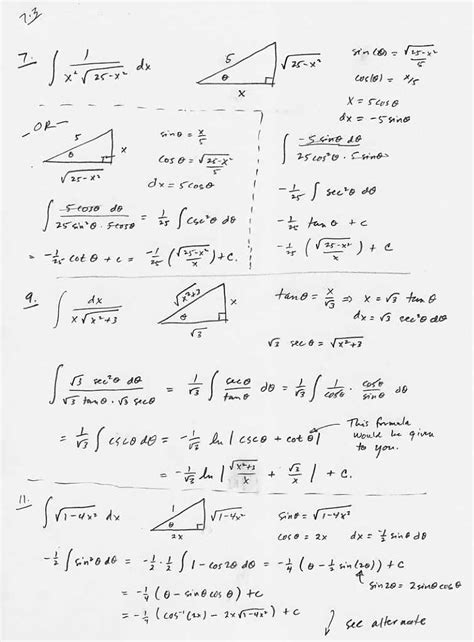 7.3
7. ∫ 1/(x²√(25-x²)) dx
5
θ
x
√(25-x²)
sin(θ) = √(25-x²)/5
cos(θ) = x/5
x = 5cosθ
dx = -5sinθ
-OR-
5
θ
x
√(25-x²)
sinθ = x/5
cosθ = √(25-x²)/5
dx = 5cosθ
∫ -5cosθ dθ/(25sin²θ · 5cosθ) = 1/25 ∫ csc²θ dθ
= -1/25 cotθ + c = -1/25 (√(25-x²)/x) + c.
∫ -5sinθ dθ/(25cos²θ · 5sinθ)
-1/25 ∫ sec²θ dθ
-1/25 tanθ + c
-1/25 (√(25-x²)/x) + c
9. ∫ dx/(x√(x²+3))
√(x²+3)
θ
x
√3
tanθ = x/√3 ⇒ x = √3 tanθ
dx = √3 sec²θ dθ
√3 secθ = √(x²+3)
∫ √3 sec²θ dθ/(√3 tanθ · √3 secθ) = 1/√3 ∫ secθ/tanθ dθ = 1/√3 ∫ 1/cosθ · cosθ/sinθ dθ
= 1/√3 ∫ cscθ dθ = -1/√3 ln|cscθ + cotθ|
This formula
would be given
to you.
= -1/√3 ln|√(x²+3)/x + √3/x| + c.
11. ∫ √(1-4x²) dx
1
θ
2x
√(1-4x²)
sinθ = √(1-4x²)
cosθ = 2x dx = -½ sinθ dθ
-½ ∫ sin²θ dθ = -½ · ½ ∫ 1-cos2θ dθ = -¼ (θ - ½ sin(2θ)) + c
sin2θ = 2sinθcosθ
= -¼ (θ - sinθcosθ) + c
= -¼ (cos⁻¹(2x) - 2x√(1-4x²)) + c
↓ see alternate